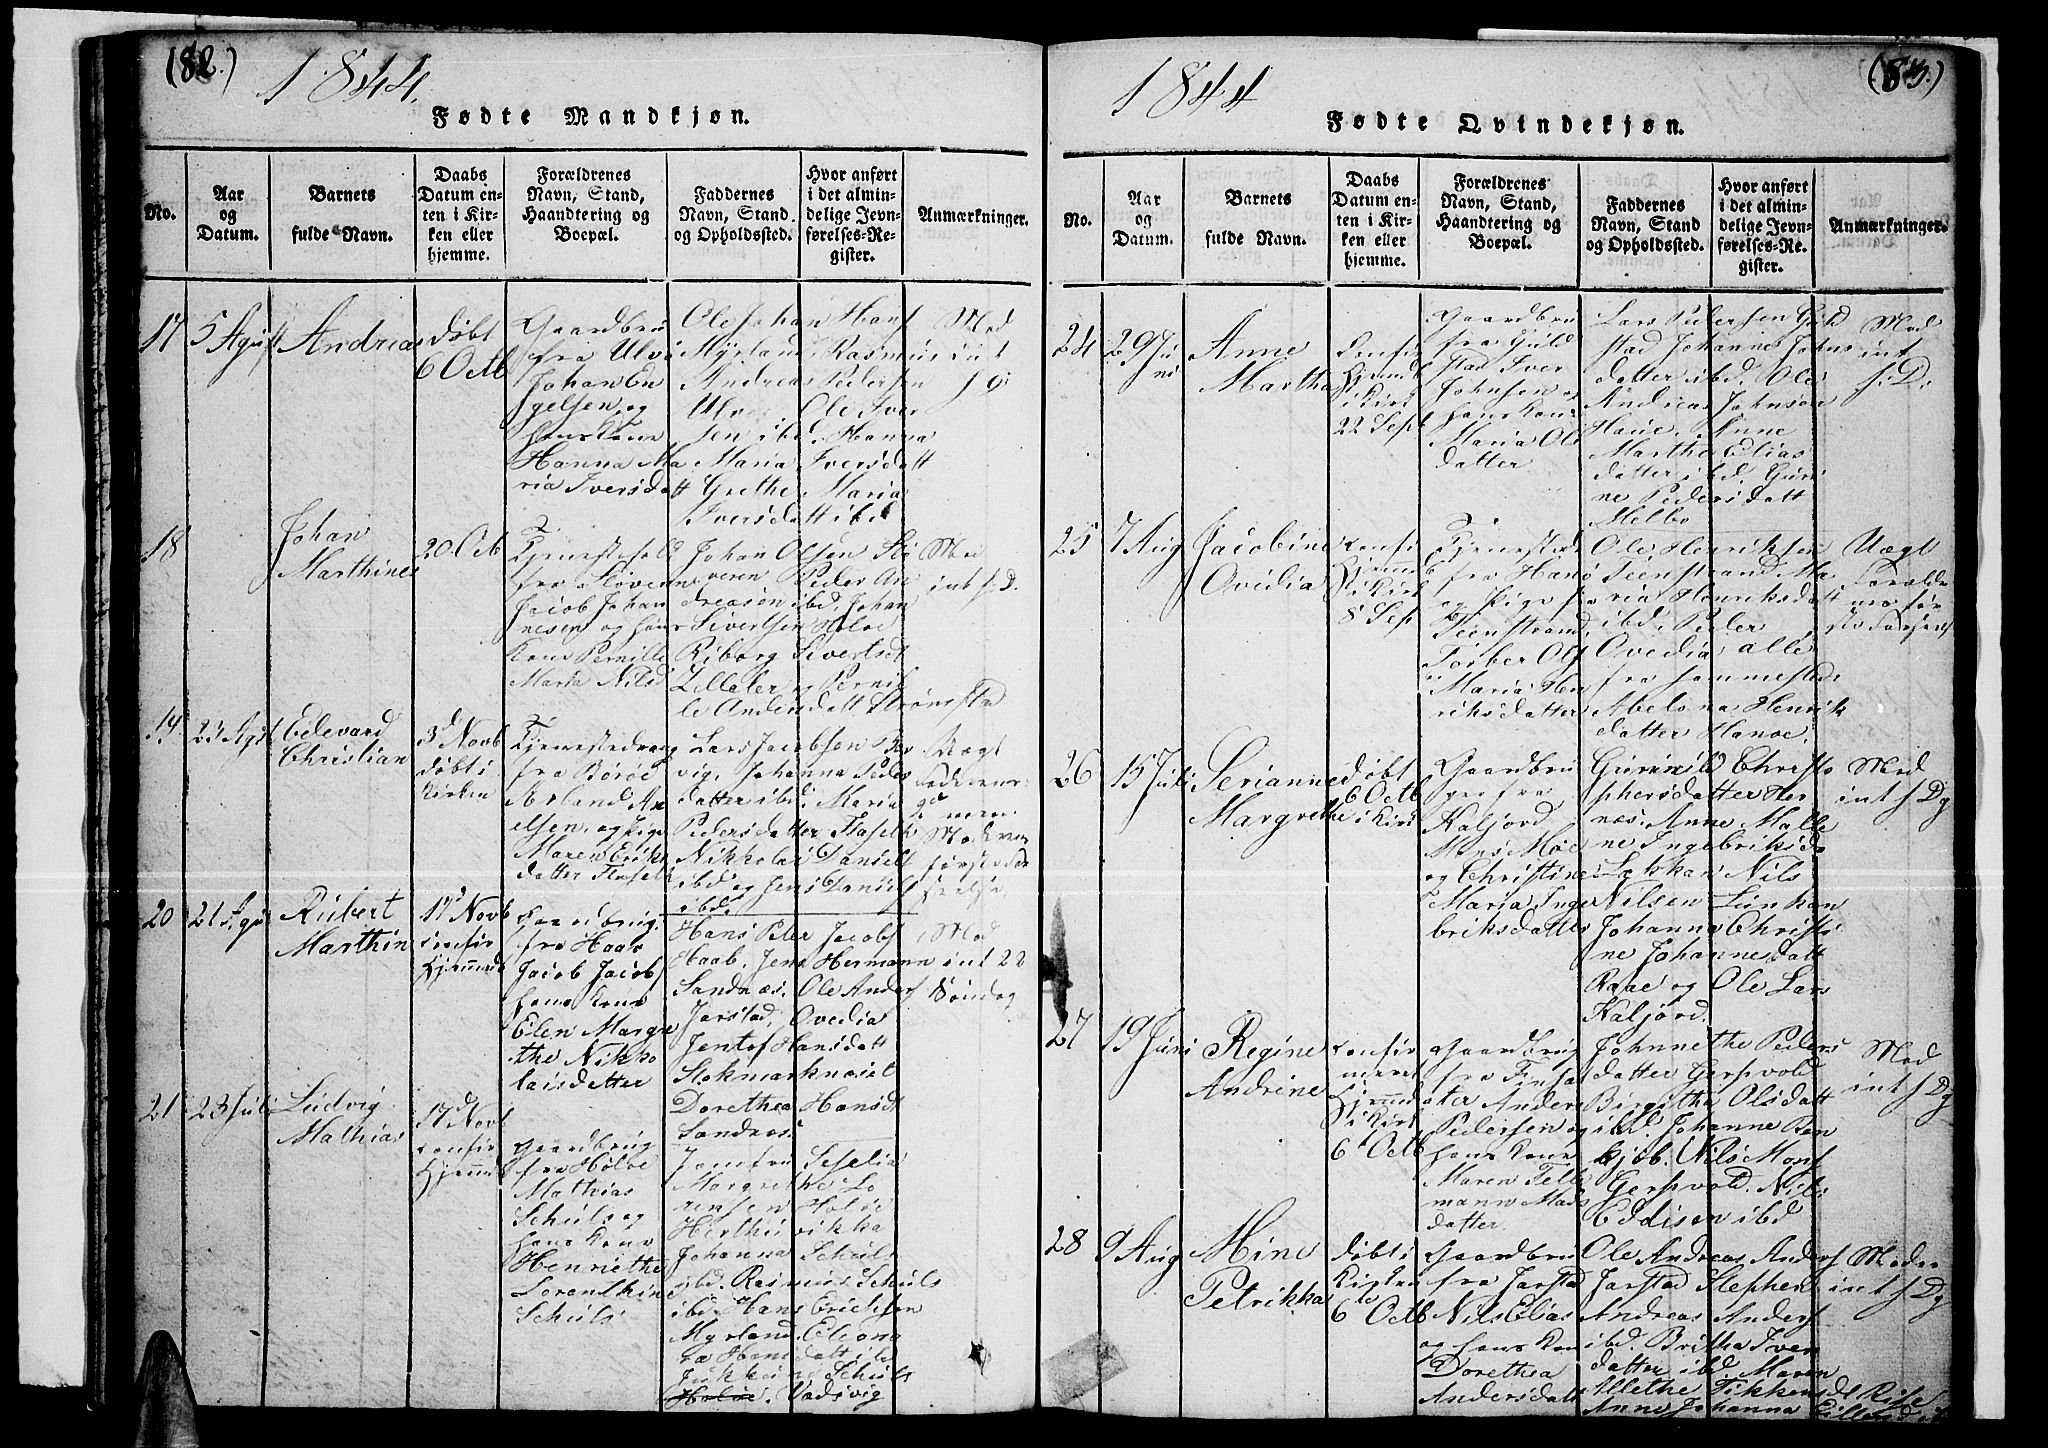 (82.)
1844.
Fødte Mandkjøn.
No.
Aar
og
Datum.
Barnets
fulde Navn.
Daabs
Datum en-
ten i Kir-
ken eller
hjemme.
Forældrenes
Navn, Stand,
Haandtering og
Boepæl.
Faddernes
Navn, Stand
og Opholdssted.
Hvor anført
i det almin-
delige Jevn-
førelses-Re-
gister.
Anmærkninger.
17
5 Agust
Andreas
døbt
6 Octb
Gaardbru
fra Ulvø
Johan En
gelsen og
hans Kone
Hanna Ma
ria Iversdatt
Ole Johan Hans
Myrland, Rasmus
Andreas Pedersen
Ulvø, Ole Iver
sen ibd. Hanna
Maria Iversdatt
Grethe Maria
Iversdatt ibd
Mod
int
18
Johan
Marthines
20 Octb
Tjenestefold
fra
Jacob Johan
nesen og hans
Kone Pernille
Maria Nilsd
Johan Olsen
Peder An
dreasen ibd, Johan
Sivertsen Holøe
Riborg Sivertsdt
le Andersdatt Strømstad
Mod
int f. D.
19
23 Agst
Edevard
Christian
3d Novb
døbt i
Kirken
Tjenestedreng
fra Børøe
Erland An
elsen og Pige
Maren Eriks
datter
Lars Jacobsen
vig, Johanna Peders
datter ibd. Maria
Pedersdatter
Nikholai Daniels
ibd og Jens Daniels
ibd.
Uægt
20
21 Agu
Rubert
Marthin
17d Novb
confir
Hjemmed
Gaardbrug.
fra Haab
Jacob Jacobs
hans Kone
Elen Margre
the Nikho
laisdatter
Hans Peter Jacobs
Haab. Jens Hermann
Sandnæs. Ole Anders
Jarstad, Ovedia
Jentof Hansdatt
Stokmarknæset
Dorethea Hansdt
Sandnæs.
Mod
int 22
Søndag
21
23 Juli
Ludvig
Mathias
17d Novb
confir
Hjemmed
Gaardbrug
fra Holøe
Mathias
Schuls og
hans Kone
Henriethe
Lorenthin
Schuls
Jomfru Seselia
Margrethe Lo
rensen Holøe
Johanna Schuls
ibd. Rasmus Schuls
ibd. Hans Erichsen
Myrland. Eleono
ra Hansdatt ibd
Schuls
Holøe. Vadsvig
(83.)
1844
Fødte Qvindekjøn.
No.
Aar
og
Datum.
Barnets
fulde Navn.
Daabs
Datum en-
ten i Kir-
ken eller
hjemme.
Forældrenes
Navn, Stand,
Haandtering og
Boepæl.
Faddernes
Navn, Stand
og Opholdssted.
Hvor anført
i det almin-
delige Jevn-
førelses-Re-
gister.
Anmærkninger.
24
29 Ju
ni
Anne
Martha
Confir
Hjemdt
i Kirk
22 Sept
Gaardbru
fra Guld
stad Iver
Johnsen og
hans Kone
Maria Ols
datter
Lars Pedersen Guld
stad Johanne Johns
datter ibd. Ole
Andreas Johnsen
Haue. Anne
Marthe Elias
datter ibd. Guri
ne Pedersdatt
Melbo
Mod
int
f. D.
25
7 Aug
Jacobine
Ovidia
confir
Hjemmd
i Kirk
8 Sep
Tjenestedr
fra Hanø
og Pige fra
Teenstrand,
Tosber Ols
Maria Hen
riksdatter
Ole Henriksen
Teenstrand Ma
ria Henriksdatt
ibd. Peder
Ovedia alle
fra sammested
Abelona Henrik
datter Hanøe.
Uægt
Foreldre
nes før
ste Forseelse
26
15 Juli
Serianne
Margrethe
døbt
6 Octb
i Kirk
Gaardbru
ger fra
Kaljord
Mons Moe
og Christine
Maria Inge
briksdatter
Guruild Christo
phersdatter Her
næs. Anne Malle
ne Ingebriksda
Løkkan Nils
Nilsen Lunkan
Johanna Christi
ne Johannesdatt
Raae og Ole Lars
Kaljord.
Mod
int f Dg
27
19 Juni
Regine
Andrine
confir
meret
Hjemmd
i Kirk
6d Octb
Gaardbrug
fra Finsæ
ter Anders
Pedersen og
hans Kone
Maren Telle
mann Mads
datter.
Johnnethe Peders
datter Gerssvold
Birgitha Olsdatt
ibd. Johanne Ron
kjøb. Nils Mons
Gerssvold. Nils
Eddisen ibd
Mod
int f Dg
28
9 Aug
Mine
Petrikka
døbt i
Kirken
6 Octb
Gaardbru
fra Jarstad
Nils Elias
og hans Kone
Dorethea
Andersdatt
Ole Andreas Anders
Jarstad Stephen
Andreas Anders
ibd. Britha Iver
datter ibd. Maren
Allethe Tikkensdt Rise
Anne Johanna
Moder
int f Dg